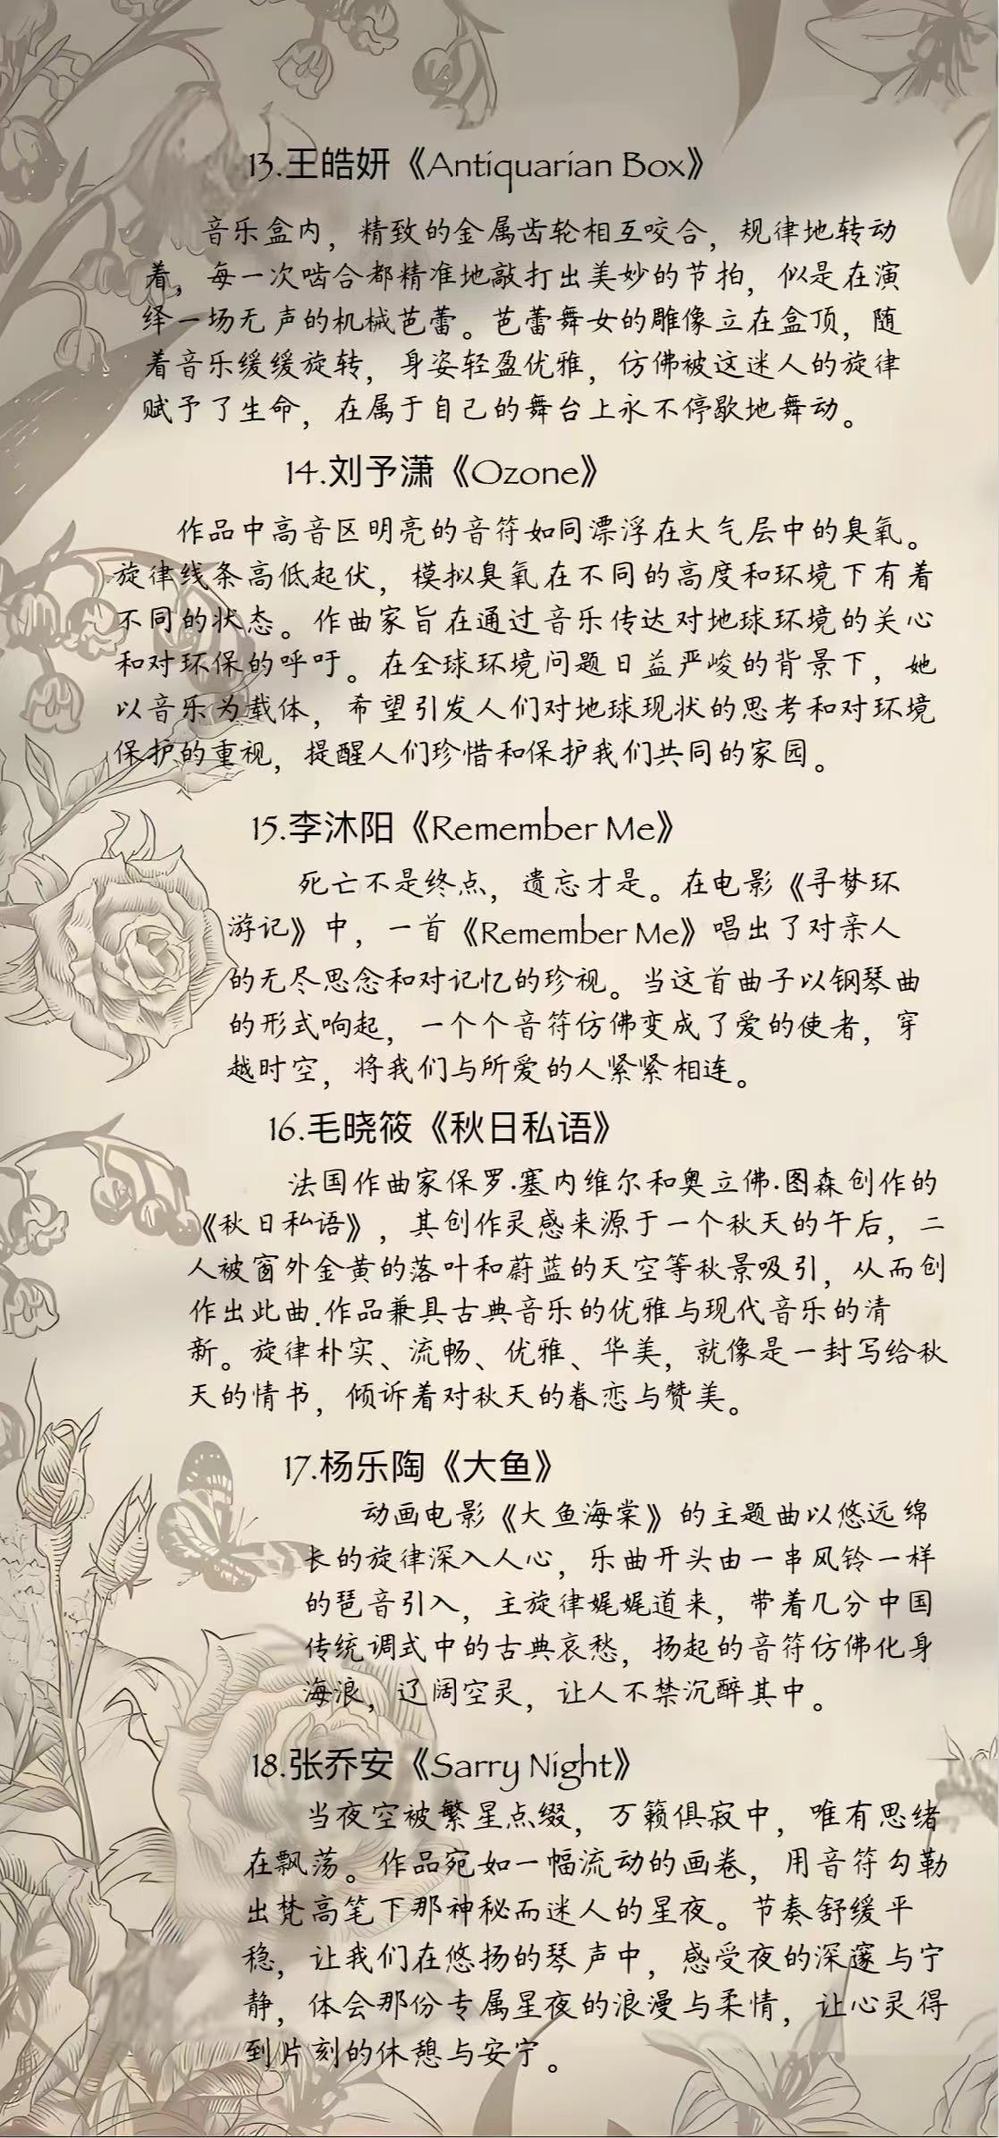 13.王皓妍《Antiquarian Box》
音乐盒内，精致的金属齿轮相互咬合，规律地转动
着，每一次啮合都精准地敲打出美妙的节拍，似是在演
绎一场无声的机械芭蕾。芭蕾舞女的雕像立在盒顶，随
着音乐缓缓旋转，身姿轻盈优雅，仿佛被这迷人的旋律
赋予了生命，在属于自己的舞台上永不停歇地舞动。
14.刘予潇《Ozone》
作品中高音区明亮的音符如同漂浮在大气层中的臭氧。
旋律线条高低起伏，模拟臭氧在不同的高度和环境下有着
不同的状态。作曲家旨在通过音乐传达对地球环境的关心
和对环保的呼吁。在全球环境问题日益严峻的背景下，她
以音乐为载体，希望引发人们对地球现状的思考和对环境
保护的重视，提醒人们珍惜和保护我们共同的家园。
15.李沐阳《Remember Me》
死亡不是终点，遗忘才是。在电影《寻梦环
游记》中，一首《Remember Me》唱出了对亲人
的无尽思念和对记忆的珍视。当这首曲子以钢琴曲
的形式响起，一个个音符仿佛变成了爱的使者，穿
越时空，将我们与所爱的人紧紧相连。
16.毛晓筱《秋日私语》
法国作曲家保罗·塞内维尔和奥立佛·图森创作的
《秋日私语》，其创作灵感来源于一个秋天的午后，二
人被窗外金黄的落叶和蔚蓝的天空等秋景吸引，从而创
作出此曲.作品兼具古典音乐的优雅与现代音乐的清
新。旋律朴实、流畅、优雅、华美，就像是一封写给秋
天的情书，倾诉着对秋天的眷恋与赞美。
17.杨乐陶《大鱼》
动画电影《大鱼海棠》的主题曲以悠远绵
长的旋律深入人心，乐曲开头由一串风铃一样
的琶音引入，主旋律娓娓道来，带着几分中国
传统调式中的古典哀愁，扬起的音符仿佛化身
海浪，辽阔空灵，让人不禁沉醉其中。
18.张乔安《Sarry Night》
当夜空被繁星点缀，万籁俱寂中，唯有思绪
在飘荡。作品宛如一幅流动的画卷，用音符勾勒
出梵高笔下那神秘而迷人的星夜。节奏舒缓平
稳，让我们在悠扬的琴声中，感受夜的深邃与宁
静，体会那份专属星夜的浪漫与柔情，让心灵得
到片刻的休憩与安宁。